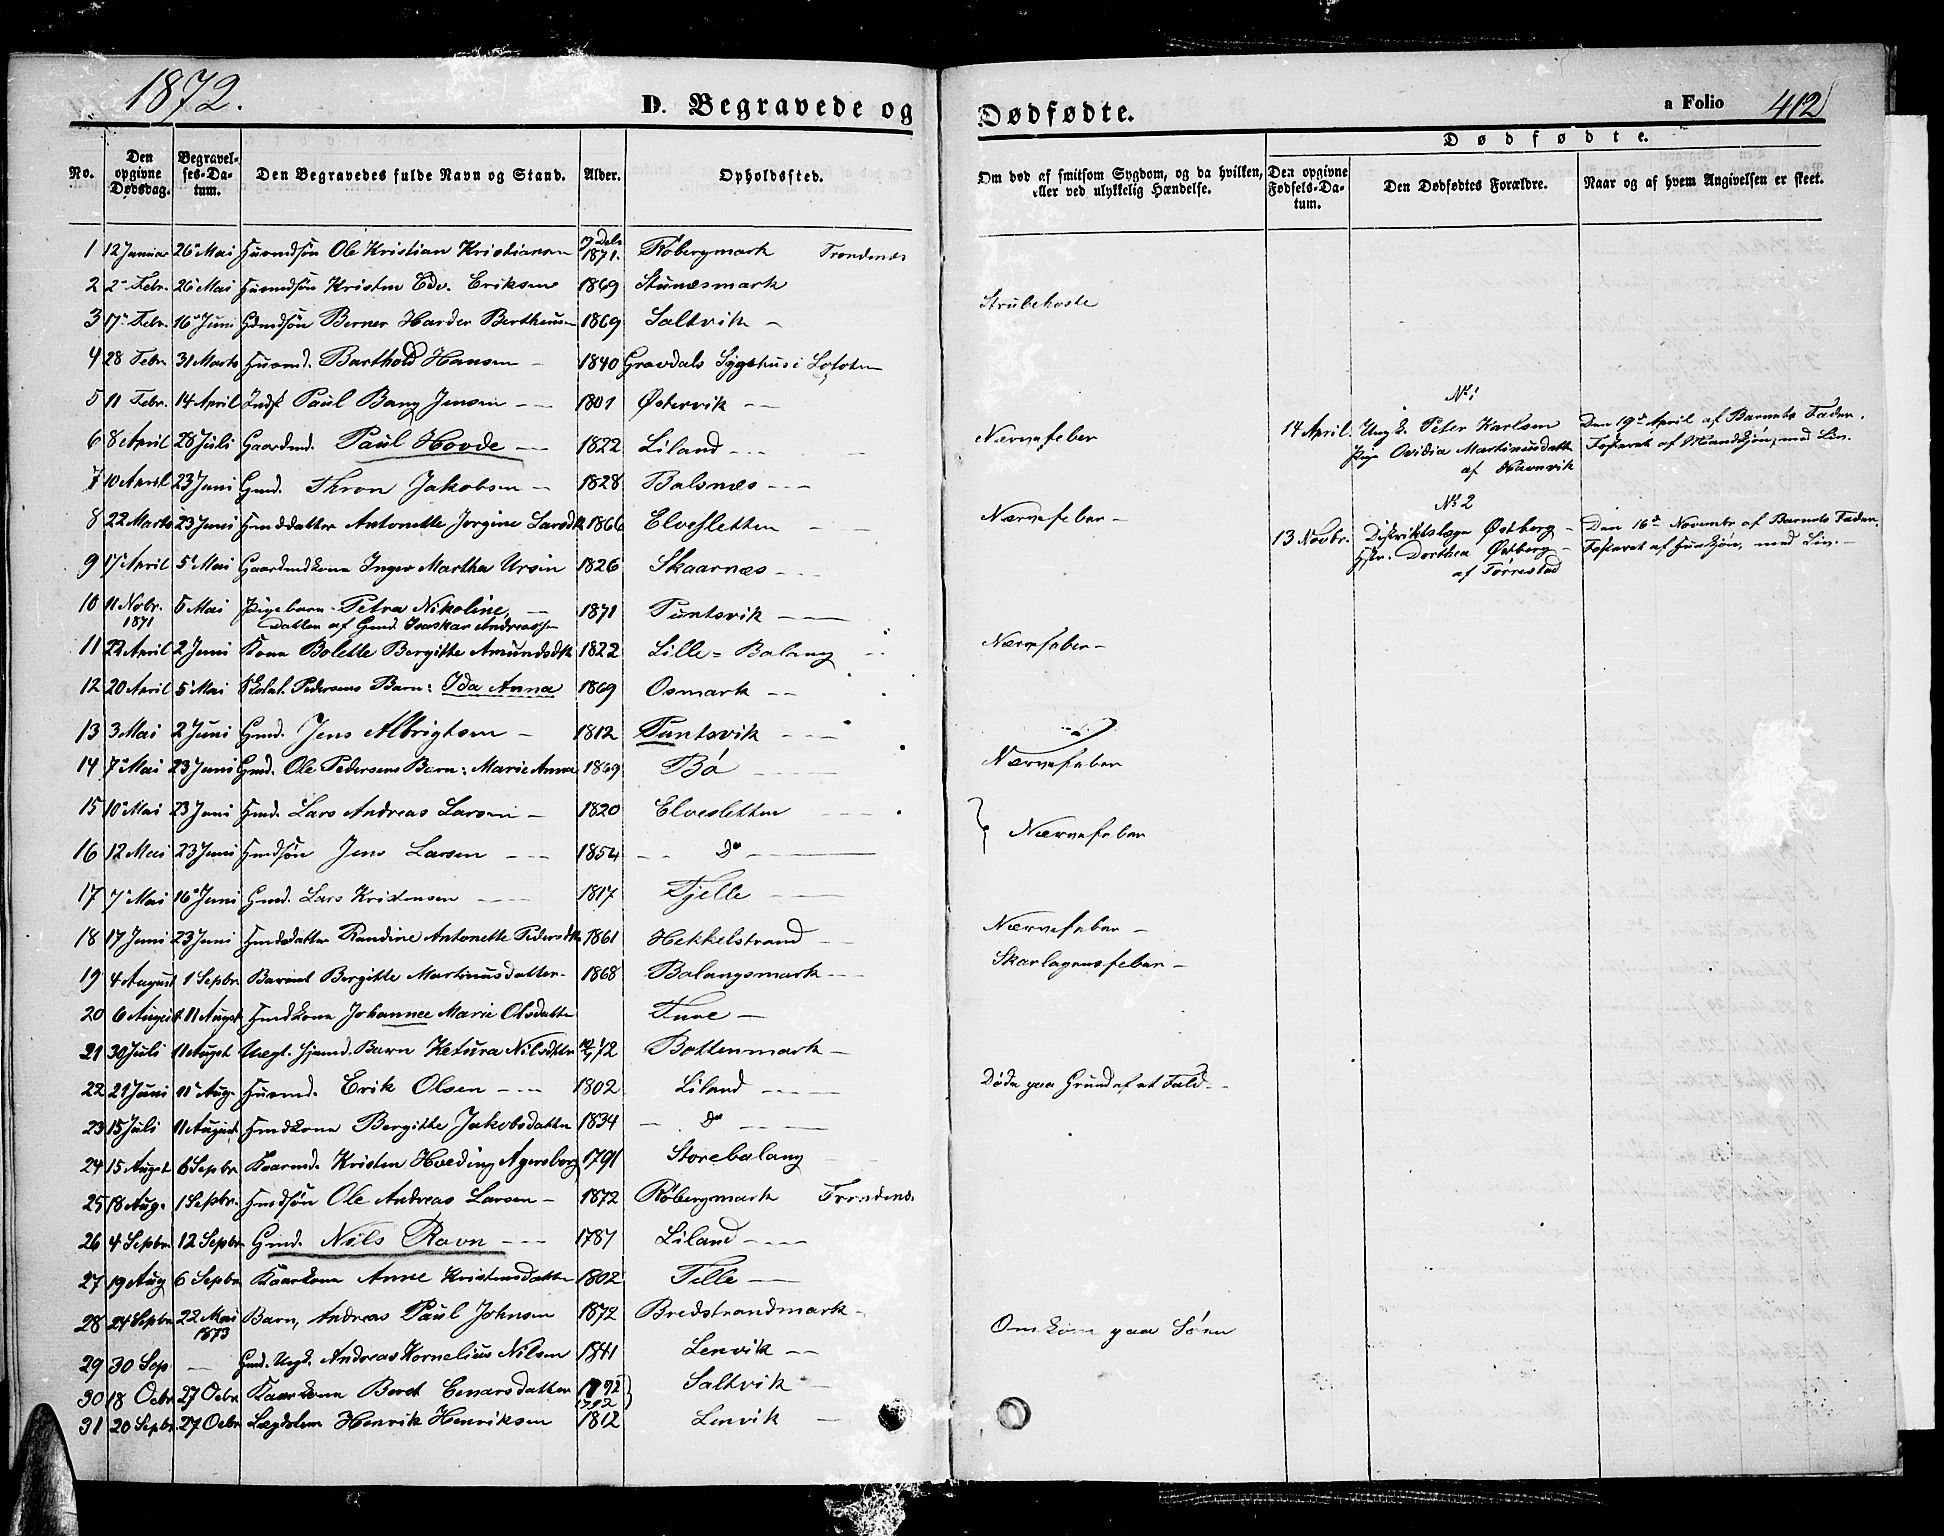 1872.
D. Begravede og
Dødfødte.
a Folio 412
No.
Den opgivne Dødsdag.
Begravelses-Datum.
Den Begravedes fulde Navn og Stand.
Alder.
Opholdssted.
Om død af smitsom Sygdom, og da hvilken, eller ved ulykkelig Hændelse.
Dødfødte.
Den opgivne Fødsels-Datum.
Den Dødfødtes Forældre.
Naar og af hvem Angivelsen er skeet.
1 12 Januar 26 Mai Huusmdsøn Ole Kristian Kristiansen 1871. Røbergmark Trondenæs
2 2 Febr. 26 Mai Huusmdsøn Kristen Edv. Eriksen 1869 Stunæsmark
3 17 Febr. 16 Juni Gmdsøn Berner Harder Bertheusen 1869 Saltvik — Strubehoste
4 28 Febr. 31 Marts Huusmd. Barthold Hansen — 1840 Gravdals Sygehus i Lofoten
5 11 Febr. 14 April Inds. Paul Bang Jensen — 1801 Østervik —
6 8 April 28 Juli Gaardmd. Paul Hovde — 1822 Liland — Nærvefeber
7 10 April 23 Juni Gmd. Thron Jakobsen — 1828 Balsnæs —
8 22 Marts 23 Juni Hmddatter Antonette Jørgine Larsdtr 1866 Elvesletten — Nærvefeber —
9 17 April 5 Mai Gaardmdkone Inger Martha Ursin 1826 Skaarnæs —
10 11 Nobr. 1871 5 Mai Pigebarn Petra Nikoline, 1871 Tuntsvik —
Datter af Gmd. Andreassen
11 22 April 2 Juni Kone Bolette Bergitte Amundsdtr 1822 Lille-Balang Nærvefeber —
12 20 April 5 Mai Skolel. Pedersens Barn: Ida Anna 1869 Osmark —
13 3 Mai 2 Juni Gmd. Jens Albrigtsen — 1812 Tuntsvik —
14 7 Mai 23 Juni Gmd. Ole Pedersens Barn: Marie Anna 1869 Bø Nærvefeber
15 10 Mai 23 Juni Hmd. Lars Andreas Larsen — 1820 Elvesletten } Nærvefeber
16 12 Mai 23 Juni Hmdsøn Jens Larsen — 1854 — Do —
17 7 Mai 16 Juni Gmd. Lars Kristensen — 1817 Fjelle —
18 17 Juni 23 Juni Hmdsdatter Randine Antonette Pedersdtr 1861 Hekkelstrand Nærvefeber —
19 4 August 1 Sepbr Barnet Bergitte Martinusdatter 1868 Balangsmark — Skarlagensfeber —
20 6 August 11 Augst Hmdkone Johannee Marie Olsdatter —
21 30 Juli 11 Augst Uegt. Barn Ketura Nilsdtr 72 Bottenmark —
22 21 Juni 11 Aug. Huusmd. Erik Olsen — 1802 Liland — Døde paa Grund af et Fald. —
23 15 Juli 11 August Hmdkone Bergitte Jakobsdatter 1834 — Do —
24 15 Augst 6 Sepbr Kaarmd. Kristen Hveding Agersborg 1791 Storebalang
25 18 Aug. 1 Sepbr. Hmdsøn Ole Andreas Larsen — 1872 Røbergmark Trondenæs
26 4 Sepbr 12 Sepbr Gmd. Nils Ravn — 1787 Liland —
27 19 Aug 6 Sepbr Kaarkone Anne Kristensdatter 1802 —
28 24 Sepbr 22 Mai 1873 Barn, Andreas Paul Johnsen 1872 Bredstrandmark —
29 30 Sep — Gmd. Ungk. Andreas Kornelius Nilsen 1841 Lenvik — Omkom paa Søen
30 18 Octbr 27 Octbr Kaarkone Berst Einarsdatter 1792 Saltvik —
31 20 Sepbr 27 Octbr Lægdslem Henrik Henriksen 1812 Lenvik —
No 1
14 April. Ungk. Peter Karlsen
Pige Ovidia Martinusdatter
af Havnvik
Den 19de April af Barnets Fader.
Fosteret af Mandkjøn, med Liv.
No 2
13 Novbr. Distriktslæge Østberg —
Hstr. Dorthea Østberg —
af Tørrestad
Den 16de Novembr af Barnets Fader.
Fosteret af Hunkjøn, med Liv. —